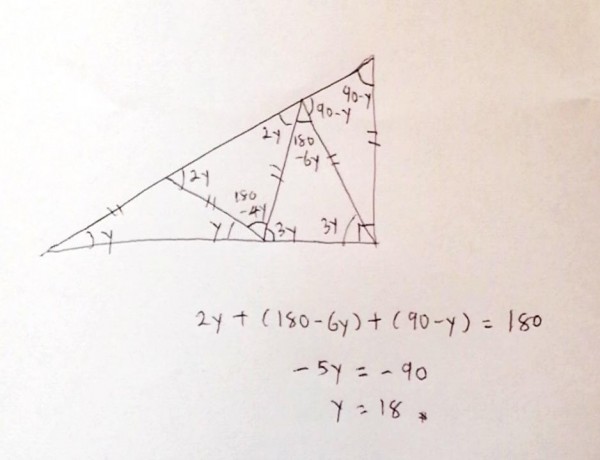 90-y
90-y
2y
180
-6y
2y
180
-4y
y
y
3y
3y
2y + (180-6y) + (90-y) = 180
-5y = -90
y = 18 *